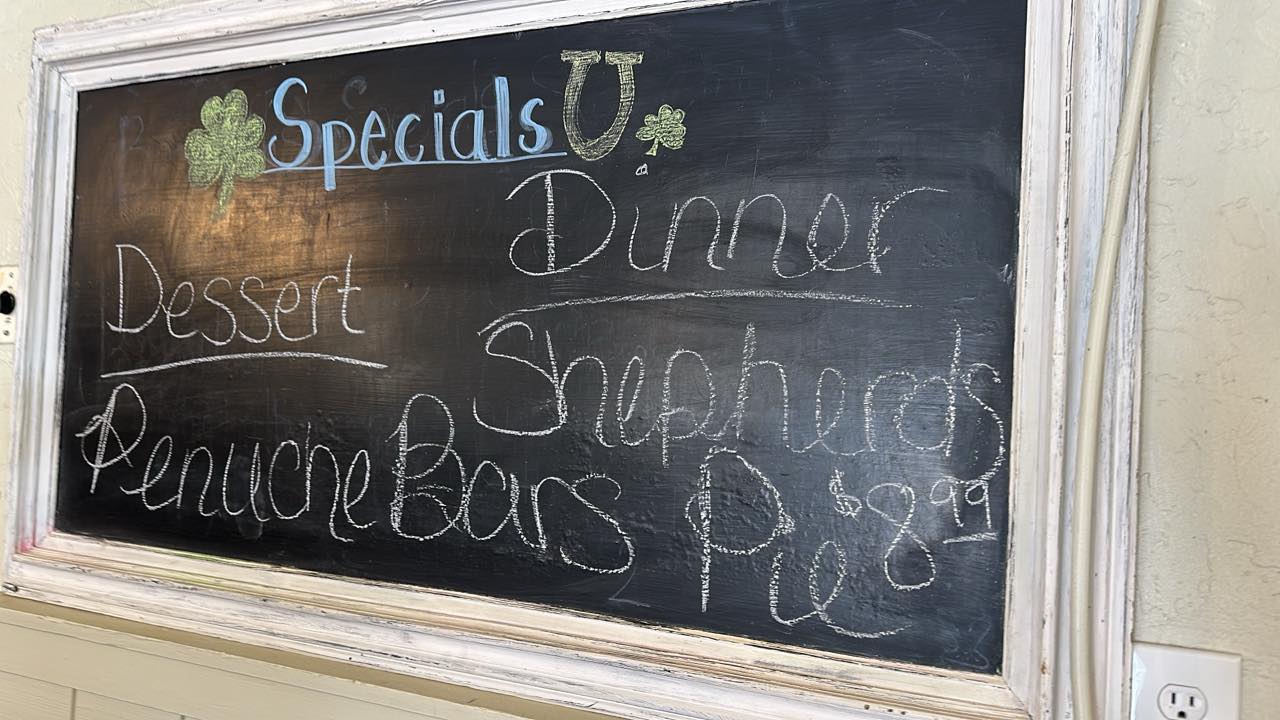 Specials
Dessert
Penuche Bars
Dinner
Shepherds
Pie $8.99